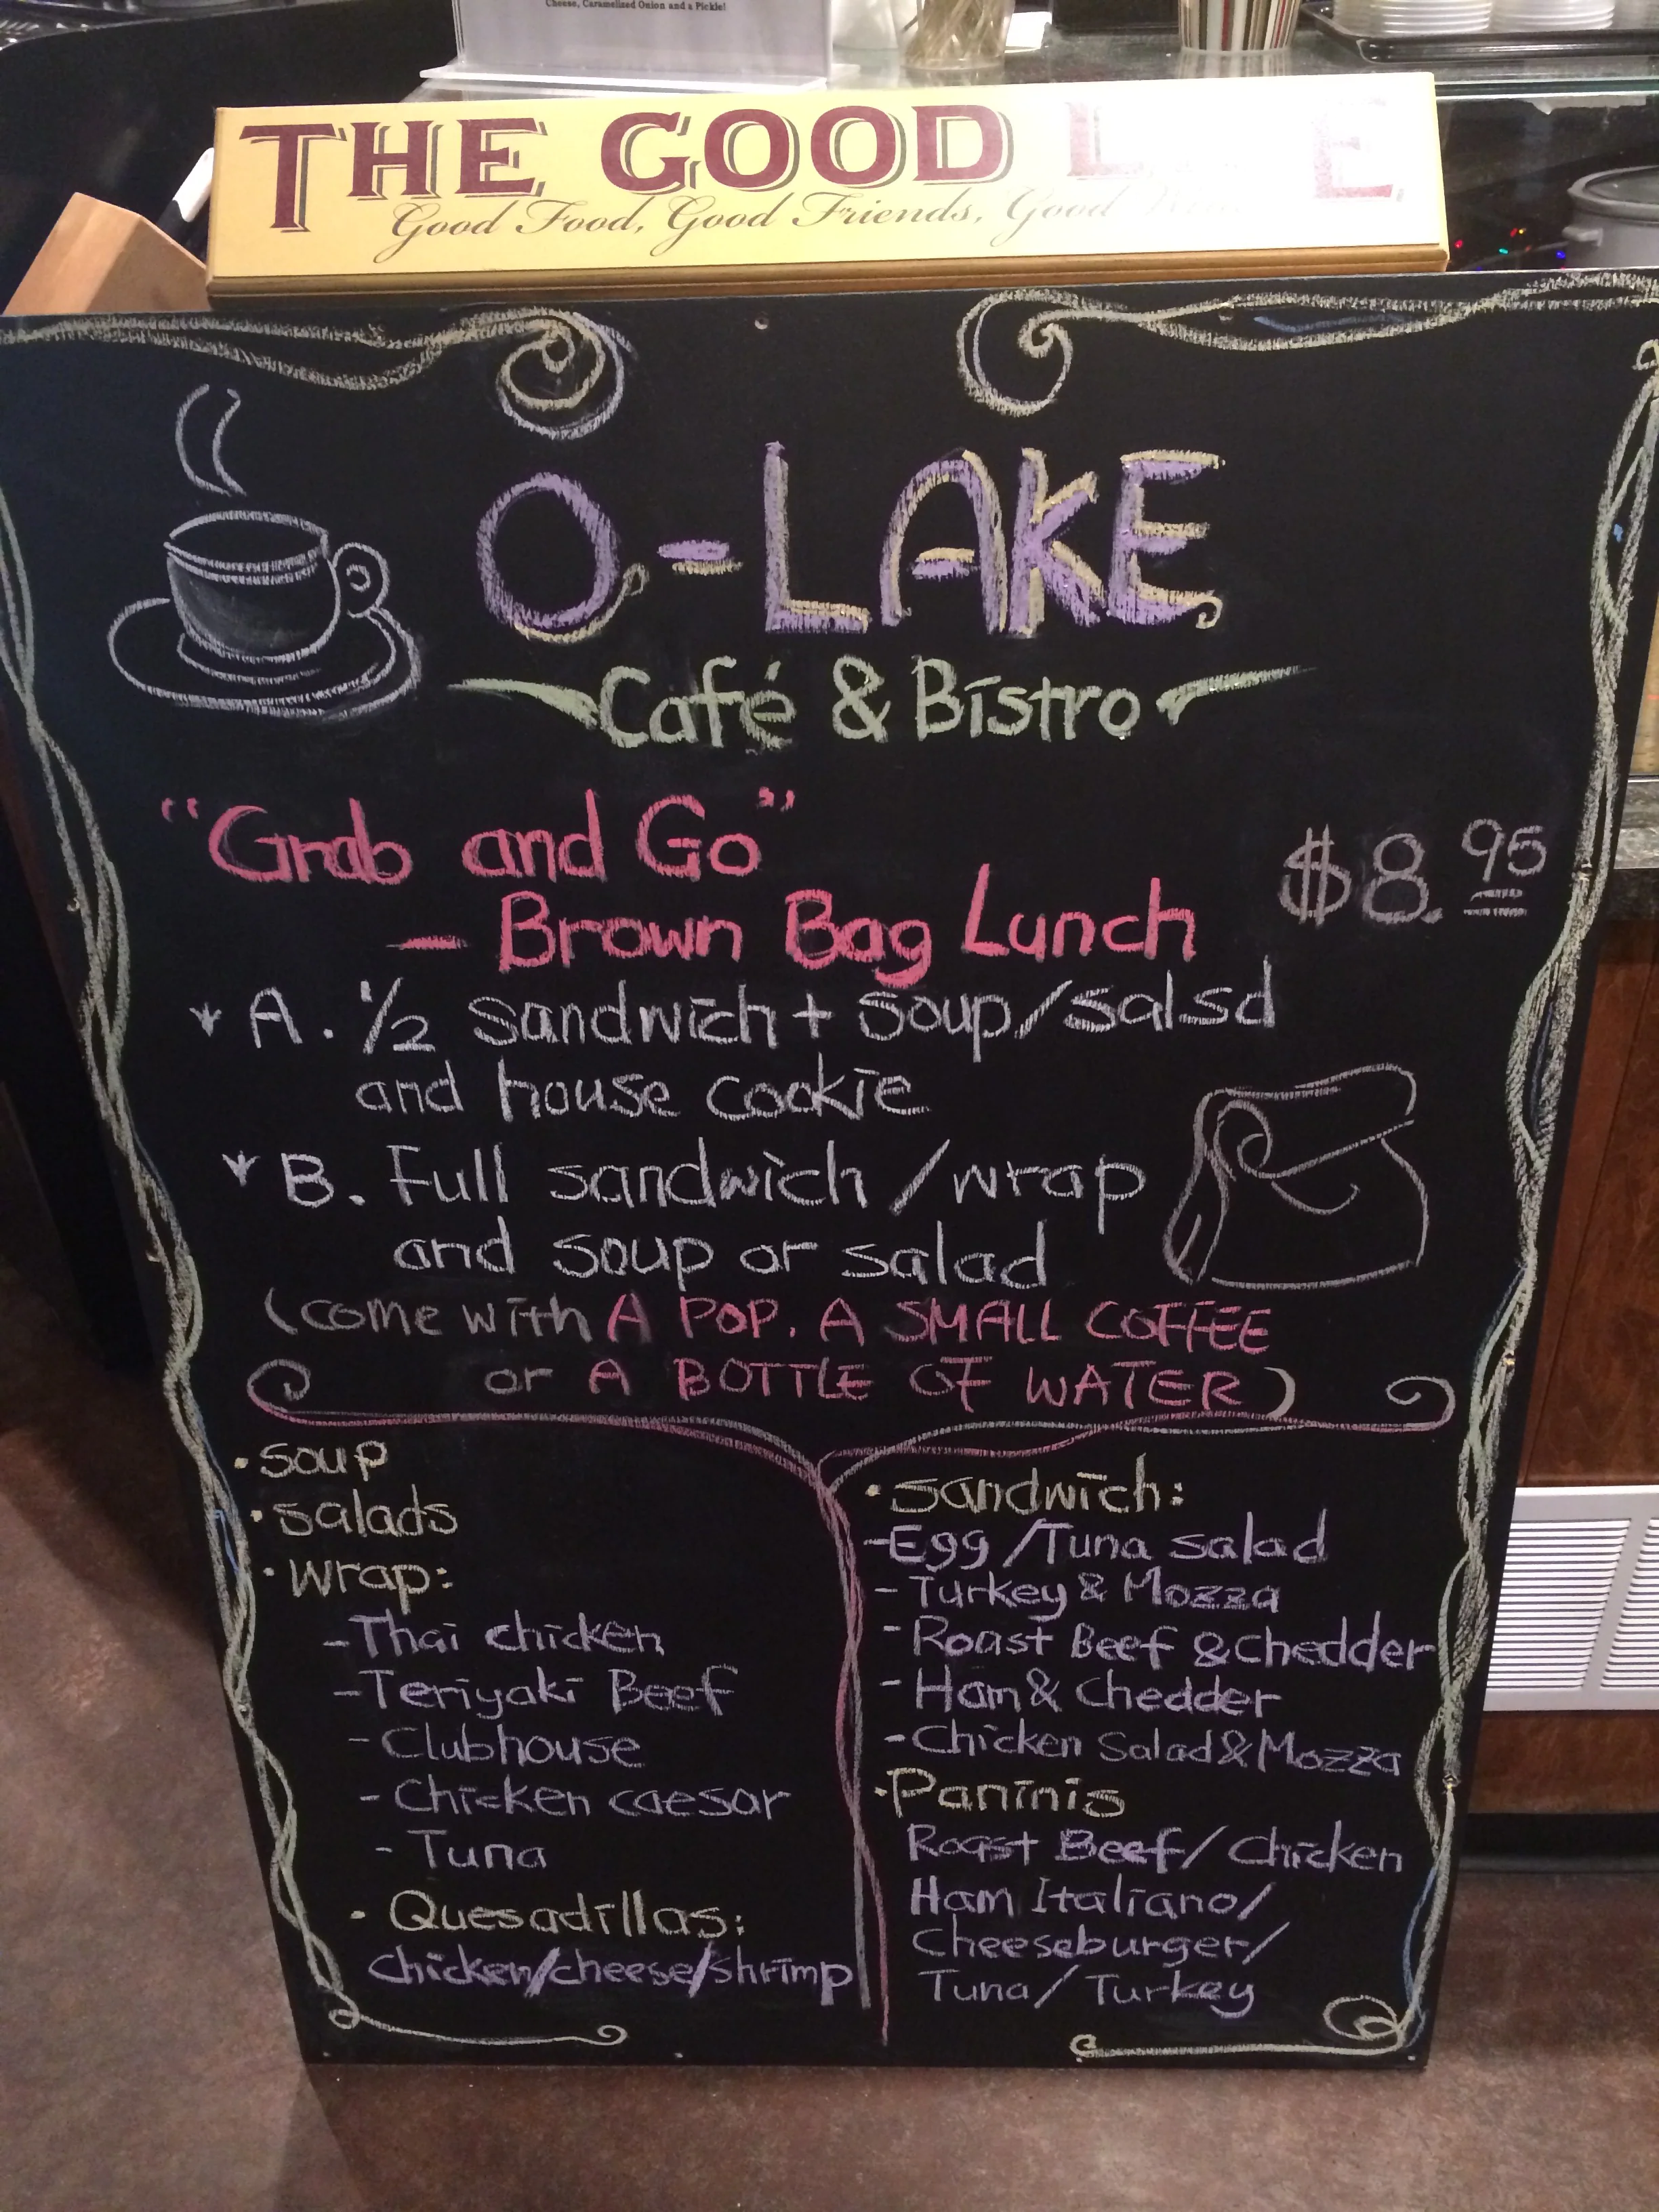 Cheese, Caramelized Onion and a Pickle!
THE GOOD L E
Good Food, Good Friends, Good
O-LAKE
Café & Bistro
"Grab and Go"
$8.95
- Brown Bag Lunch
A. 1/2 sandwich + soup/salad
and house cookie
B. Full sandwich / wrap
and soup or salad
(come with A POP. A SMALL COFFEE
or A BOTTLE OF WATER)
· soup
· salads
· wrap:
- Thai chicken
- Teriyaki Beef
- Clubhouse
- Chicken caesar
- Tuna
· Quesadillas:
chicken/cheese/shrimp
· sandwich:
- Egg / Tuna salad
- Turkey & Mozza
- Roast Beef & chedder
- Ham & chedder
- Chicken Salad & Mozza
· Paninis
Roast Beef / Chicken
Ham Italiano/
Cheeseburger/
Tuna / Turkey